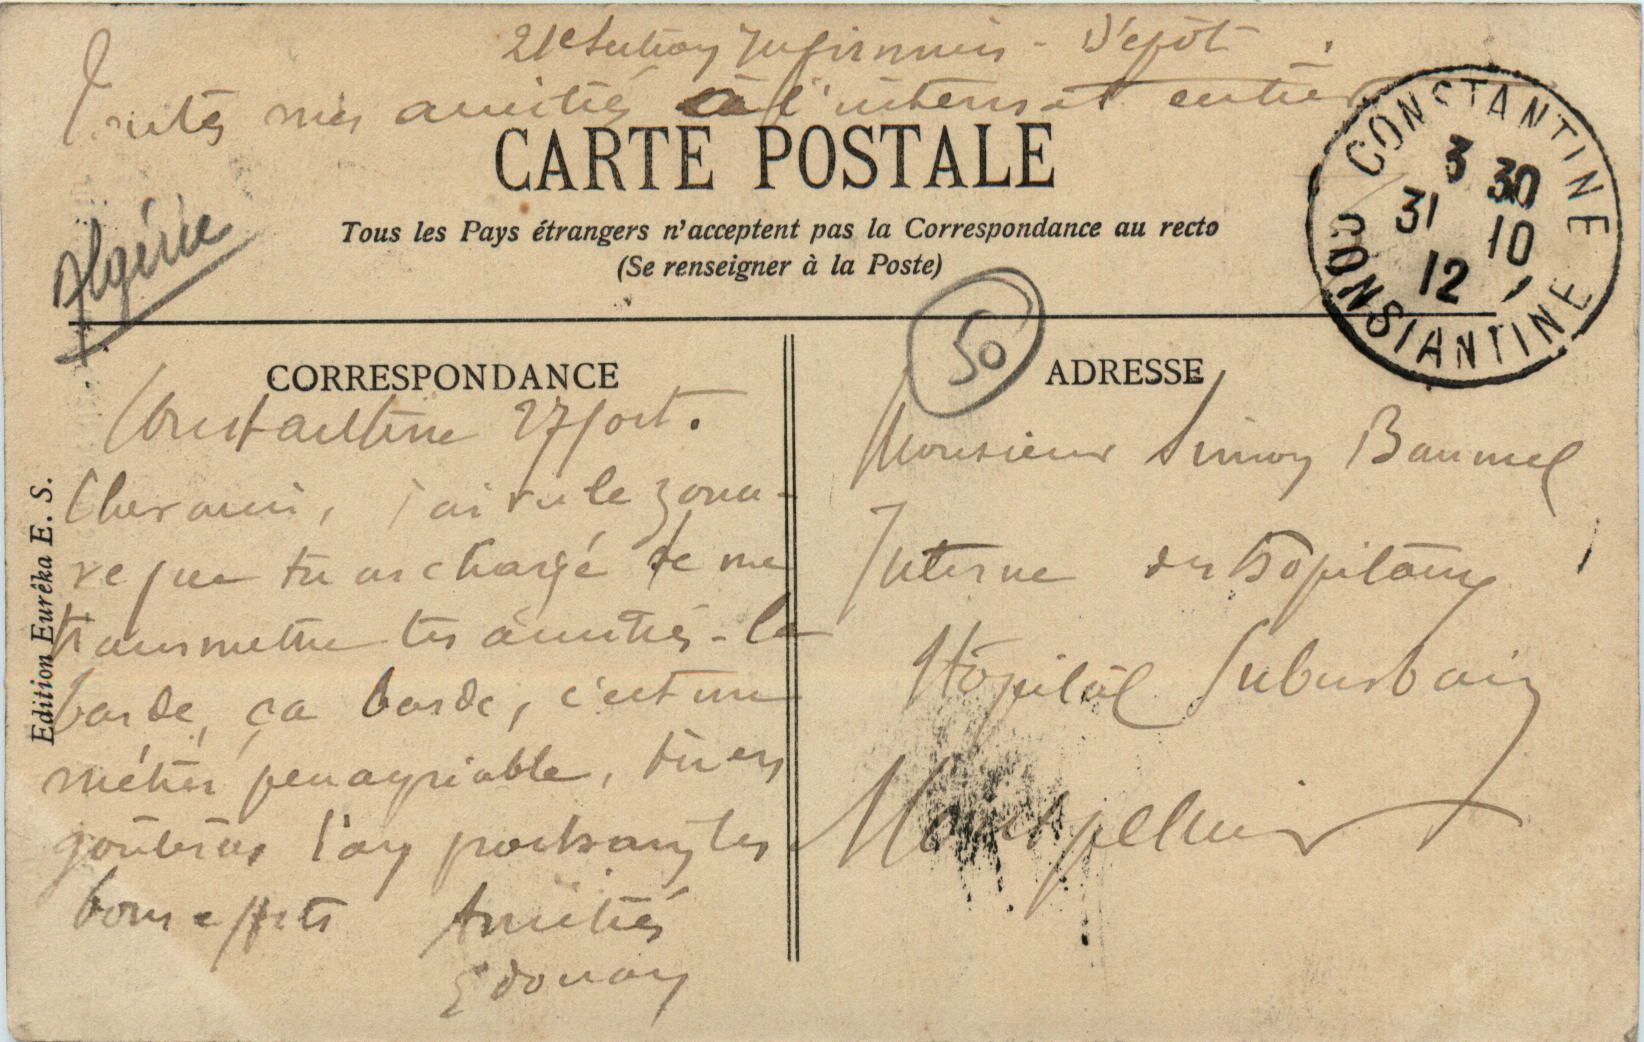 21e Section Infirmiers - Dépôt
Toutes mes amitiés à l'internat entier
CARTE POSTALE
Tous les Pays étrangers n'acceptent pas la Correspondance au recto
(Se renseigner à la Poste)
Algérie
CONSTANTINE
3 30
31 10
12
CONSTANTINE
50
CORRESPONDANCE
Constantine 27 oct.
Cher ami, j'ai vu le zoua-
ve que tu as chargé de me
transmettre tes amitiés - la
barde, ça barde, c'est un
métier peu agréable, tu en
goûteras l'an prochain les
bons effets Amitiés
Edouard
ADRESSE
Monsieur Simon Baumel
Interne des hôpitaux
Hôpital Suburbain
Montpellier
Edition Eurêka E. S.